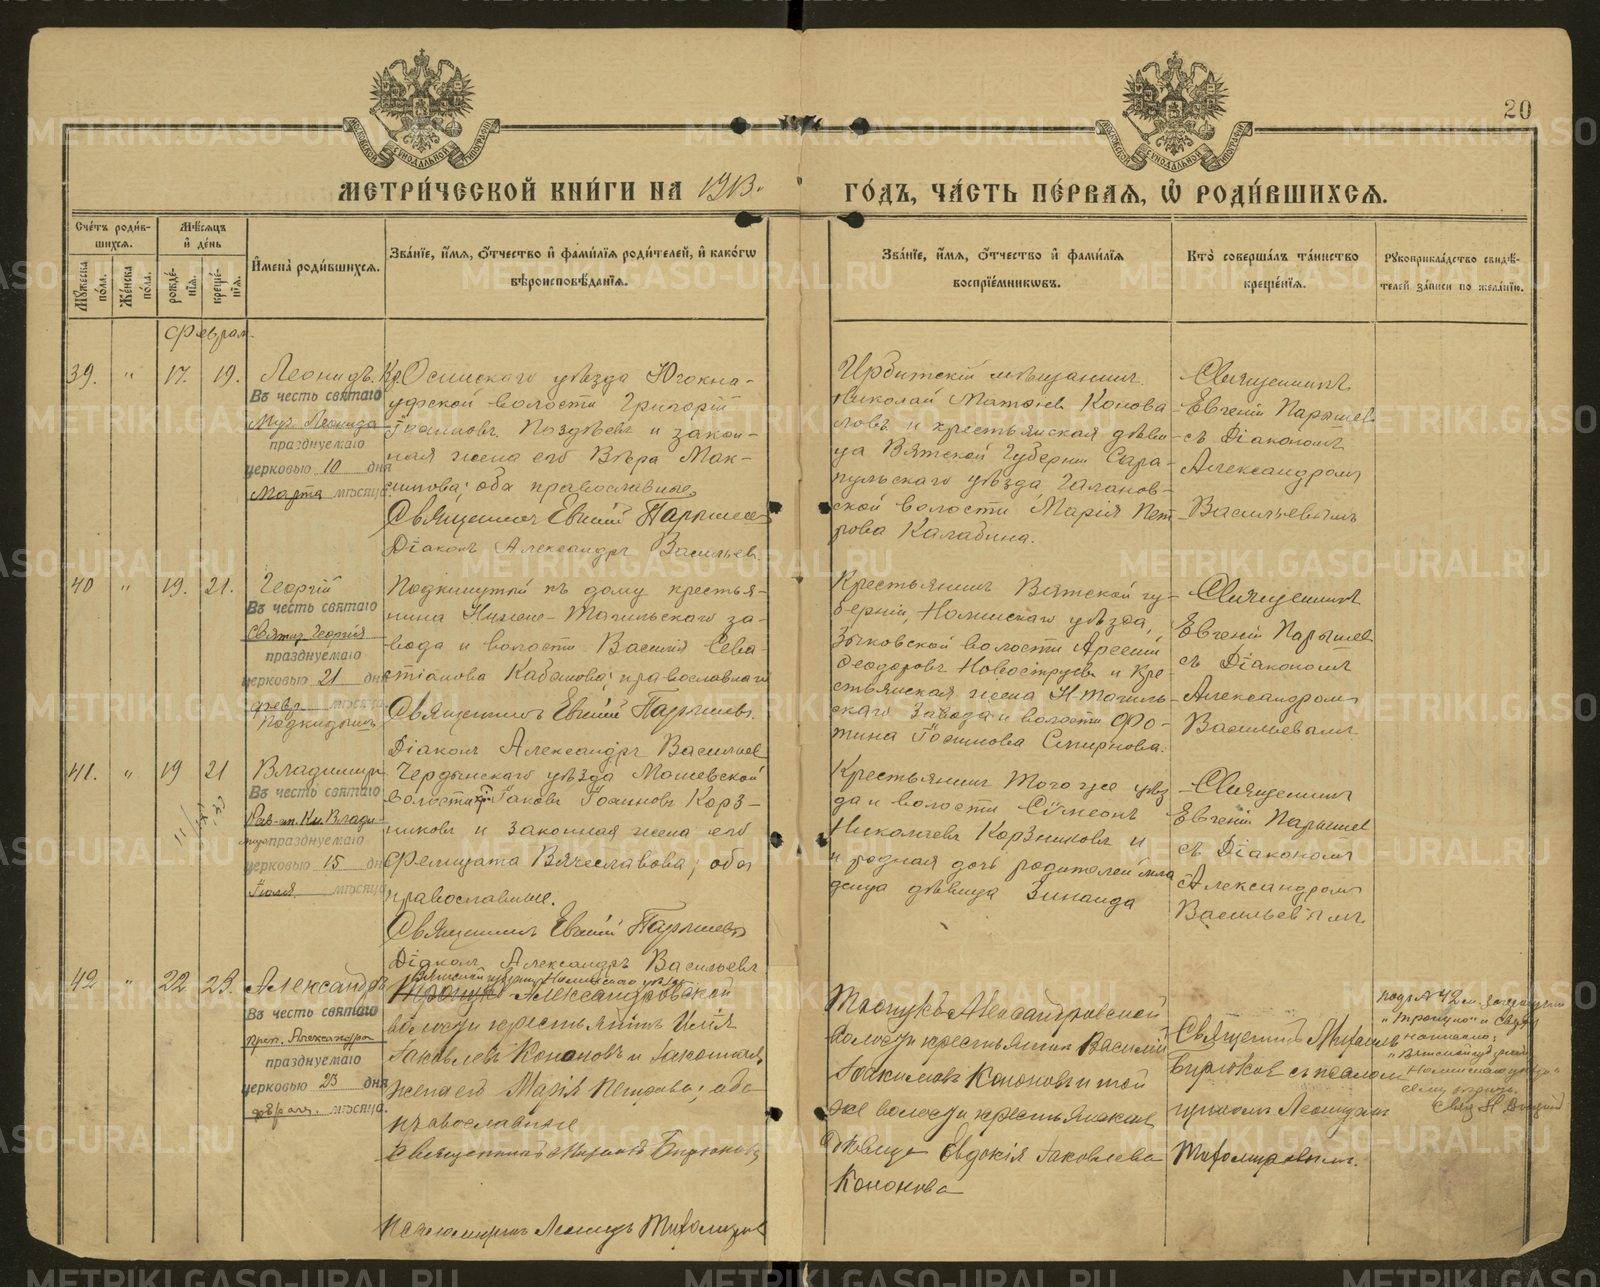 20
МЕТРИ́ЧЕСКОЙ КНИ́ГИ НА 1913.
ГО́ДЪ, ЧА́СТЬ ПЕ́РВАѦ, Ѡ҆ РОДИ́ВШИХСѦ.
Сче́тъ роди́в-
шихсѧ.
Мѣ́сѧцъ
и҆ де́нь
Мꙋ́жеска
по́ла.
Же́нска
по́ла.
рожде́-
нїѧ.
креще́-
нїѧ.
И҆мена̀ роди́вшихсѧ.
Зва́нїе, и҆́мѧ, ѻ҆́тчество и҆ фами́лїѧ роди́телей, и҆ како́гѡ
вѣроисповѣ́данїѧ.
Зва́нїе, и҆́мѧ, ѻ҆́тчество и҆ фами́лїѧ
воспрїе́мникѡвъ.
Кто̀ соверша́лъ та́инство
креще́нїѧ.
Рꙋкоприкла́дство свидѣ́-
телей за́писи по жела́нїю.
39. " 17. 19. Леонидъ.
Въ честь святаго
Муч. Леонида
празднуемаго
церковью 10 дня
Марта мѣсяца
Кр. Осинскаго уѣзда Югокна-
уфской волости Григорій
Іоанновъ Поздѣевъ и закон-
ная жена его Вѣра Мак-
симова; оба православные.
Священникъ Евгеній Парышевъ
Діаконъ Александръ Васильевъ
Ирбитскій мѣщанинъ
Николай Матѳіев Конова
ловъ и крестьянская дѣви-
ца Вятской Губерніи Сара-
пульскаго уѣзда, Галанов-
ской волости Марія Пет
рова Калабина.
Священникъ
Евгеній Парышев
съ Діакономъ
Александромъ
Васильевымъ
40 " 19. 21. Георгій
Въ честь святаго
Георгія
празднуемаго
церковью 21 дня
февр. мѣсяца
Подкидышъ
Подкинутый къ дому крестья-
нина Нижне-Тагильскаго за-
вода и волости Василія Сева-
стіанова Кабанова; православнаго
Священникъ Евгеній Парышевъ.
Діаконъ Александръ Васильев
Крестьянинъ Вятской гу-
берніи, Нолинскаго уѣзда,
Зыковской волости Арсеній
Ѳеодоровъ Новоструев и кре-
стьянская жена Н Тагиль-
скаго Завода и волости Фо-
тина Іоаннова Смирнова.
Священникъ
Евгеній Парышев
съ Діакономъ
Александромъ
Васильевымъ
41. " 19 21 Владиміръ
Въ честь святаго
Рав-ап. Кн. Влади-
празднуемаго
церковью 15 дня
Іюля мѣсяца
Чердынскаго уѣзда Мошевской
волости Іаковъ Іоанновъ Корз-
никовъ и законная жена его
Фелицата Вячеславова; оба
православные.
Священникъ Евгеній Парышевъ
Діаконъ Александръ Васильевъ
Крестьянинъ того же уѣз
да и волости Сѵмеонъ
Николаевъ Корзниковъ и
и родная дочь родителей мла
денца дѣвица Зинаида
Священникъ
Евгеній Парышев
съ Діакономъ
Александромъ
Васильевымъ
42 " 22 23. Александръ
Въ честь святаго
преп. Александра
празднуемаго
церковью 23 дня
февраля. мѣсяца.
Вятской губерніи Нолинскаго уѣзда
Александровской
волости крестьянинъ Илія
Іаковлевъ Кононовъ и законная
жена его Марія Петрова; оба
православные
Священникъ Михаилъ Бирюковъ
Псаломщикъ Леонидъ Тихомировъ
Александровской
волости крестьянин Василій
Іоакимовъ Кононовъ и той
же волости крестьянская
дѣвица Евдокія Іаковлева
Кононова
Священникъ Михаилъ
Бирюков съ псалом
щикомъ Леонидомъ
Тихомировымъ.
METRIKI.GASO-URAL.RU